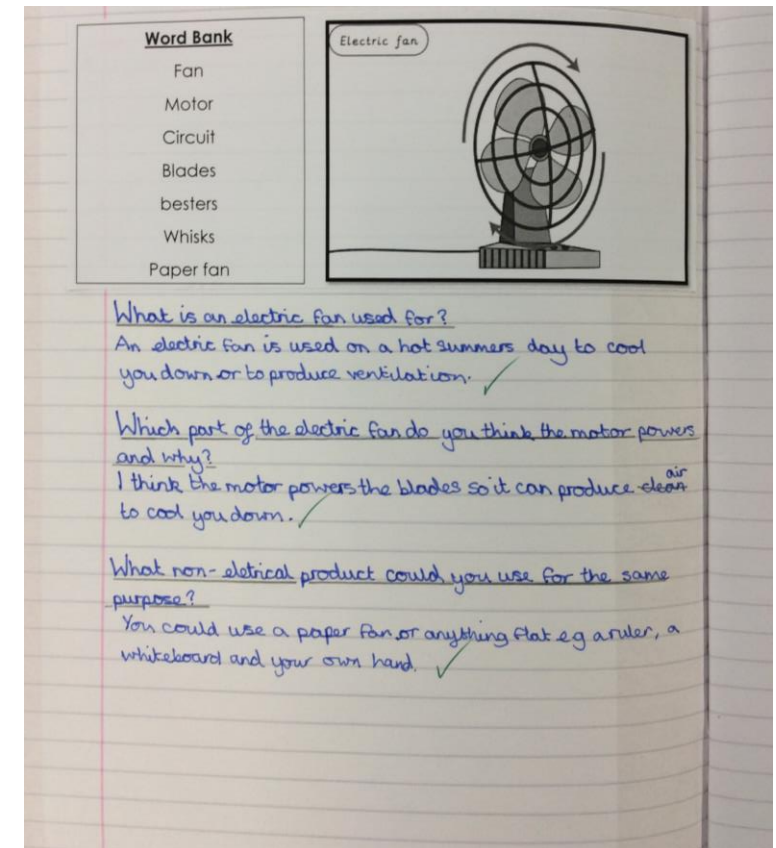 Word Bank
Fan
Motor
Circuit
Blades
besters
Whisks
Paper fan
Electric fan
What is an electric fan used for?
An electric fan is used on a hot summers day to cool
you down or to produce ventilation.
Which part of the electric fan do you think the motor powers
and why?
I think the motor powers the blades so it can produce clean air
to cool you down.
What non-eletrical product could you use for the same
purpose?
You could use a paper fan or anything flat eg a ruler, a
whiteboard and your own hand.